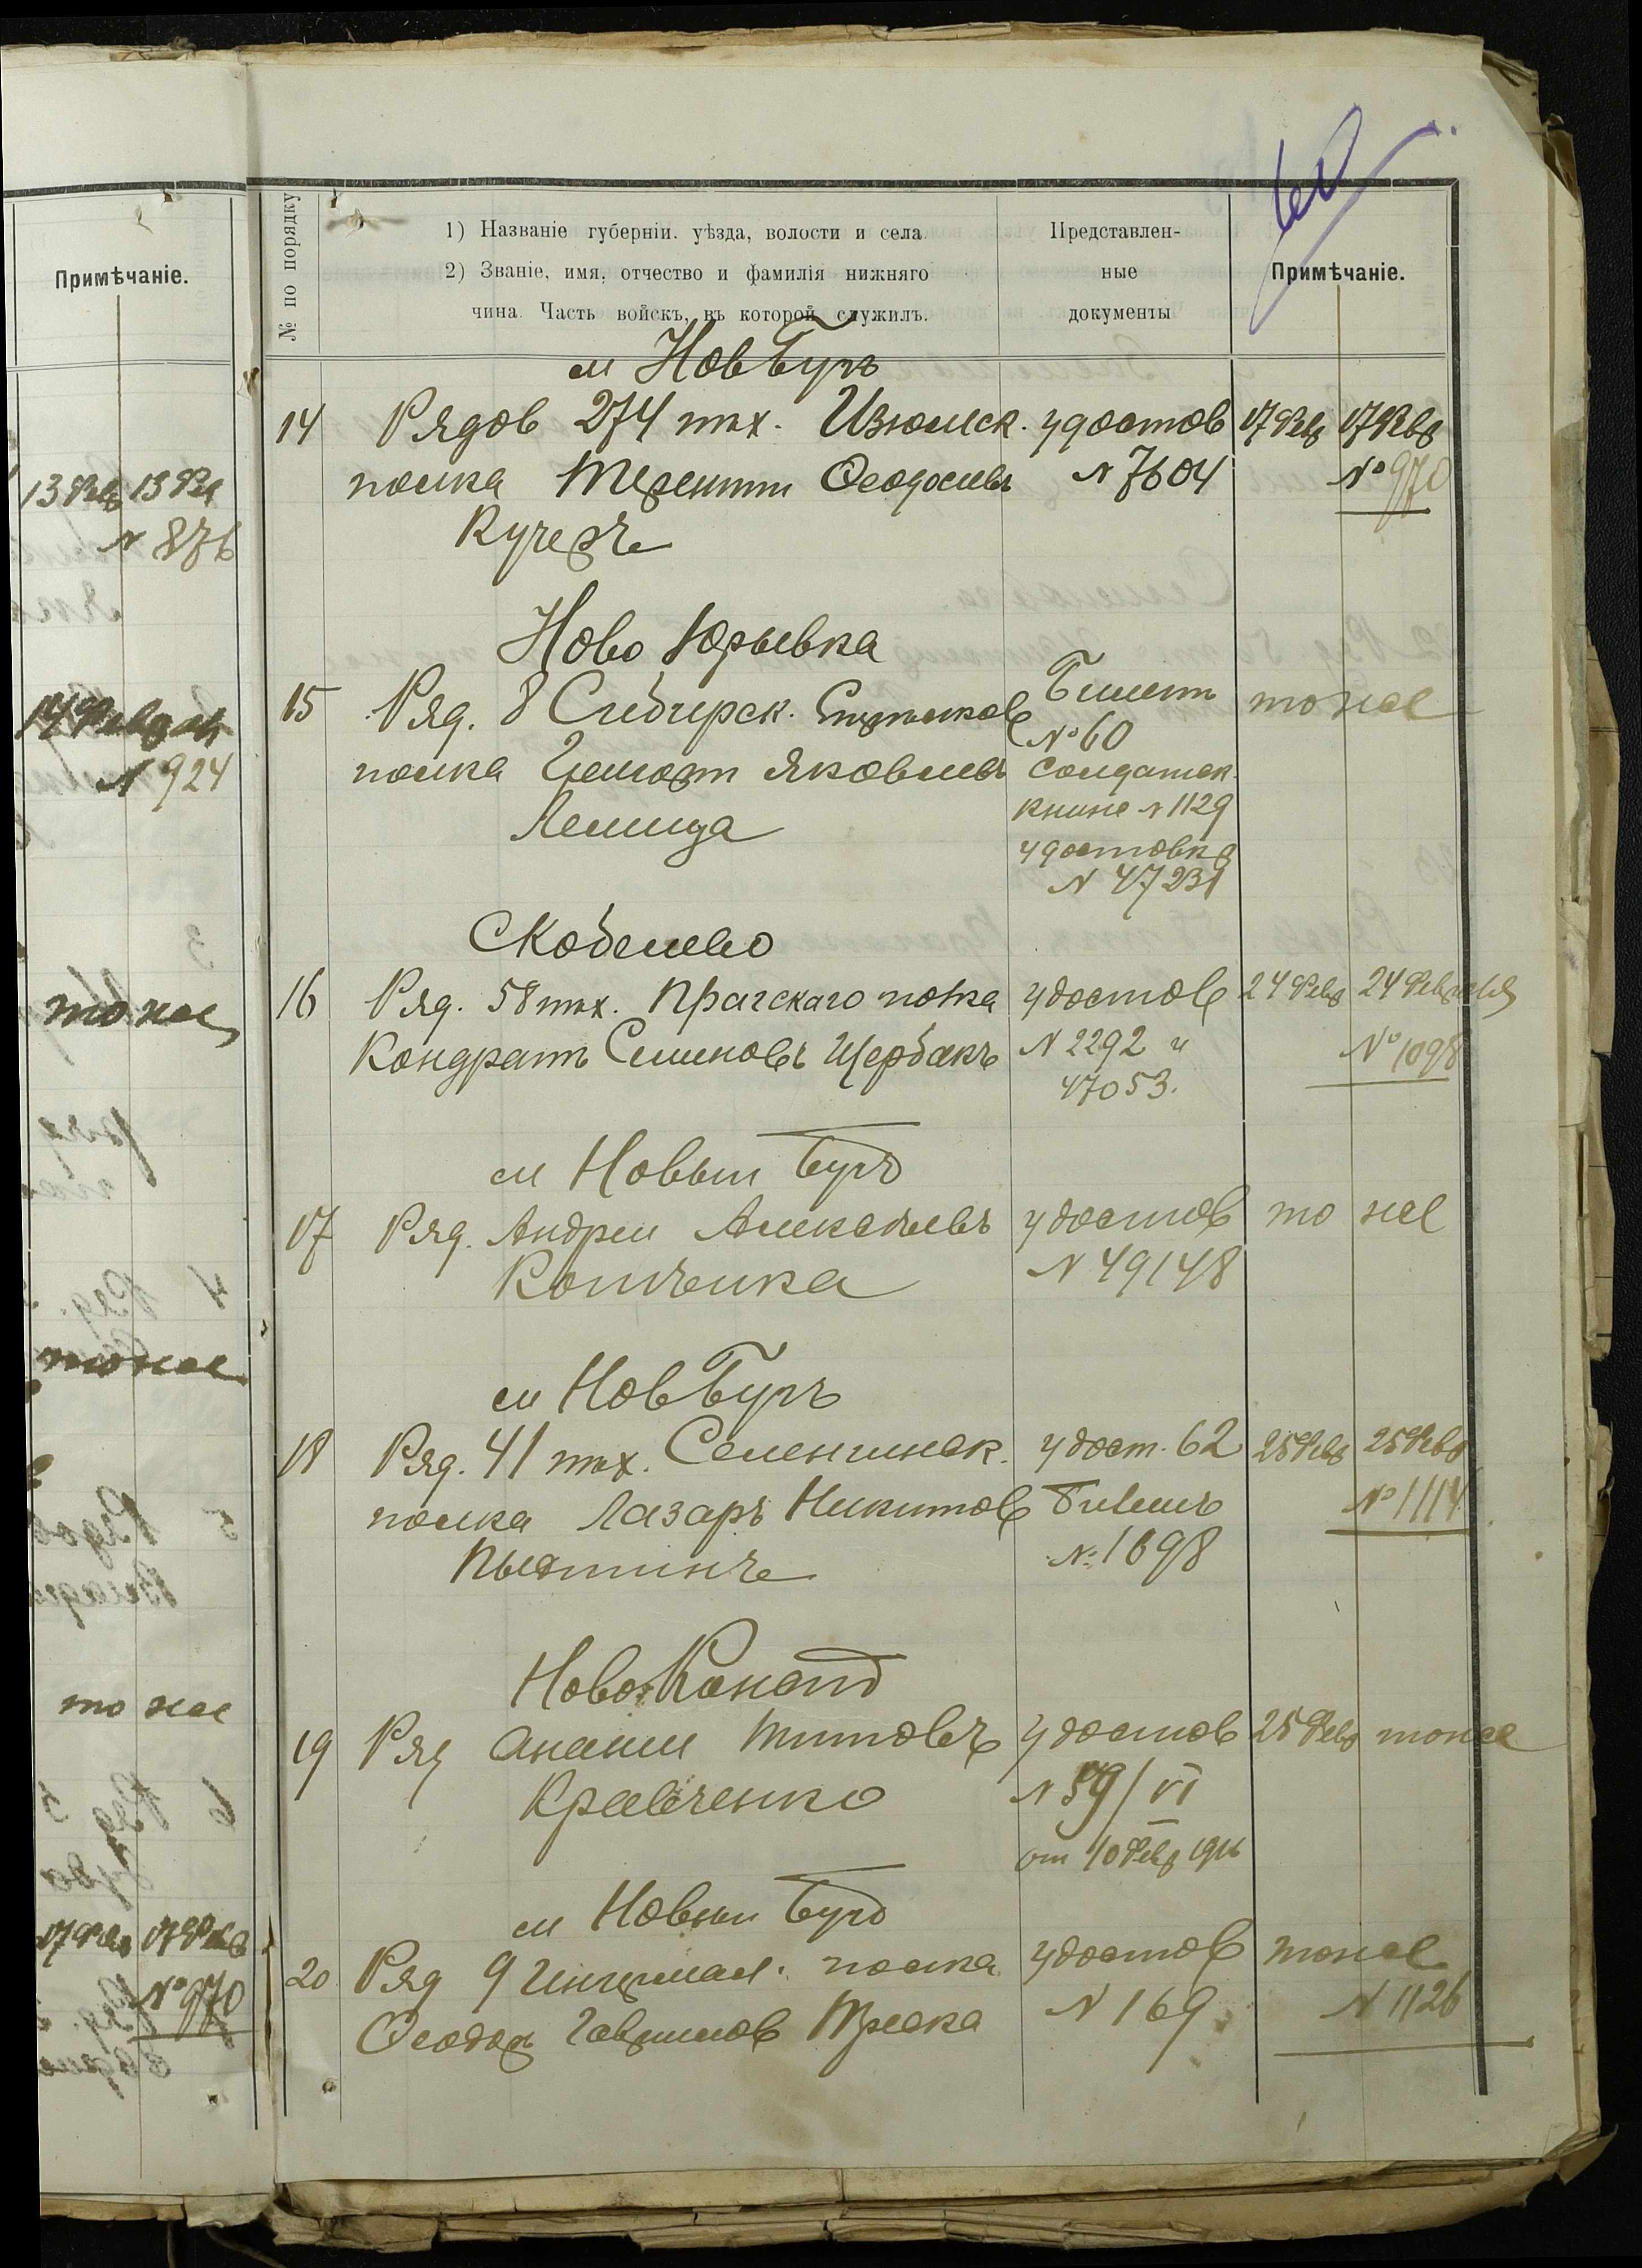 Примѣчаніе.
13 Фев 13 Фев
№ 876
№ 924
то же
то же
то же
17 Фев 17 Фев
№ 970
№ по порядку
1) Названіе губерніи. уѣзда, волости и села.
2) Званіе, имя, отчество и фамилія нижняго
чина. Часть войскъ, въ которой служилъ.
Представлен-
ные
документы
Примѣчаніе.
м Нов Бугъ
14 Рядов 274 пѣх. Изюмск. удостов 17 Фев 17 Фев
полка Терентій Феодосіевъ № 7604 № 970
Кучеръ
Ново Юрьевка
15 Ряд. 8 Сибирск. Стрѣлков Билетъ то же
№ 60
полка Яковлевъ Солдатск.
книж № 1129
Лемища
удостовѣр
№ 47231
Скобелево
16 Ряд. 58 пѣх. Прагскаго полка удостов 24 Фев 24 Февраля
Кондратъ Семеновъ Щербакъ № 2292 и № 1098
47053.
м Новый Бугъ
17 Ряд. Андрей Алексѣевъ удостов то же
№ 49148
м Нов Бугъ
18 Ряд. 41 пѣх. Селенгинск. удост. 62 25 Фев 25 Фев
полка Лазаръ Никитов Билетъ № 1114
№ 1698
Ново
19 Ряд Ананій Титовъ удостов 25 Фев то же
Кравченко № 59/VI
от 10 Фев 1916
м Новый Бугъ
20 Ряд 9 Ингерманл. полка удостов то же
Феодор Гаврилов № 169 № 1126